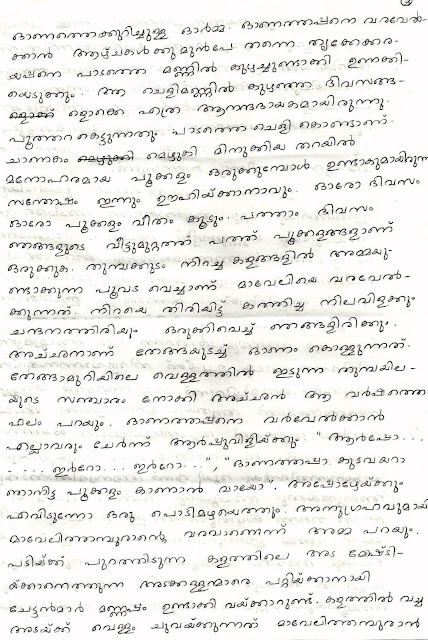 ഓണത്തെക്കുറിച്ചുള്ള ഓർമ്മ. ഓണത്തപ്പനെ വരവേൽ-
ക്കാൻ ആഴ്ചകൾക്കുമുൻപേ തന്നെ തൃക്കേക്കര-
യപ്പനെ പാടത്തെ മണ്ണിൽ കുഴച്ചുണ്ടാക്കി ഉണക്കി-
യെടുക്കും. ആ ചെളിമണ്ണിൽ കുഴഞ്ഞ ദിവസങ്ങ-
ളൊക്കെ എത്ര ആനന്ദദായകമായിരുന്നു.
പൂത്തറ കെട്ടുന്നതും പാടത്തെ ചെളി കൊണ്ടാണ്.
ചാണകം മെഴുകി മിനുക്കിയ തറയിൽ
മനോഹരമായ പൂക്കളം ഒരുക്കുമ്പോൾ ഉണ്ടാകുമായിരുന്ന
സന്തോഷം ഇന്നും ഊഹിയ്ക്കാനാവും. ഓരോ ദിവസം
ഓരോ പൂക്കളം വീതം കൂടും. പത്താം ദിവസം
ഞങ്ങളുടെ വീട്ടുമുറ്റത്ത് പത്ത് പൂക്കളങ്ങളാണ്
ഒരുക്കുക. തുമ്പക്കുടം നിറച്ച കളങ്ങളിൽ അമ്മയു-
ണ്ടാക്കുന്ന പൂവട വെച്ചാണ് മാവേലിയെ വരവേൽ-
ക്കുന്നത്. നിറയെ തിരിയിട്ട് കത്തിച്ച നിലവിളക്കും
ചന്ദനത്തിരിയും ഒരുക്കിവെച്ച് ഞങ്ങളിരിക്കും.
അച്ഛനാണ് തേങ്ങയുടച്ച് ഓണം കൊള്ളുന്നത്.
തേങ്ങാമുറിയിലെ വെള്ളത്തിൽ ഇടുന്ന തുമ്പയില-
യുടെ സഞ്ചാരം നോക്കി അച്ഛൻ ആ വർഷത്തെ
ഫലം പറയും. ഓണത്തപ്പനെ വരവേൽക്കാൻ
എല്ലാവരും ചേർന്ന് ആർപ്പുവിളിയ്ക്കും "ആർപ്പോ...
-....ഇർറോ...ഇർറോ...", "ഓണത്തപ്പാ കുടവയറാ
ഞാനിട്ട പൂക്കളം കാണാൻ വായോ". അപ്പോഴേയ്ക്കും
എവിടുന്നോ ഒരു പൊടിമഴയെത്തും. അനുഗ്രഹവുമായി
മാവേലിത്തമ്പുരാന്റെ വരവാണെന്ന് അമ്മ പറയും.
പടിയ്ക്ക് പുറത്തിടുന്ന കളത്തിലെ അട മോഷ്ടി-
യ്ക്കാനെത്തുന്ന അടക്കള്ളന്മാരെ പറ്റിയ്ക്കാനായി
ചേട്ടൻമാർ മണ്ണപ്പം ഉണ്ടാക്കി വയ്ക്കാറുണ്ട്. കളത്തിൽ വച്ച
അടയ്ക്ക് വെള്ളം ചുവയ്ക്കുന്നത് മാവേലിത്തമ്പുരാൻ